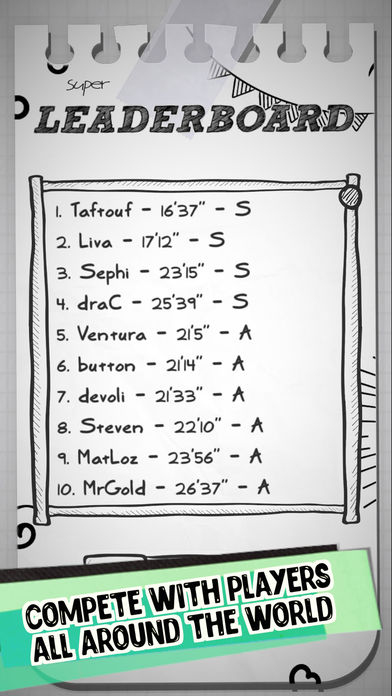 super
LEADERBOARD
1. Taftouf - 16'37" - S
2. Liva - 17'12" - S
3. Sephi - 23'15" - S
4. draC - 25'39" - S
5. Ventura - 21'5" - A
6. button - 21'14" - A
7. devoli - 21'33" - A
8. Steven - 22'10" - A
9. MatLoz - 23'56" - A
10. MrGold - 26'37" - A
COMPETE WITH PLAYERS
ALL AROUND THE WORLD